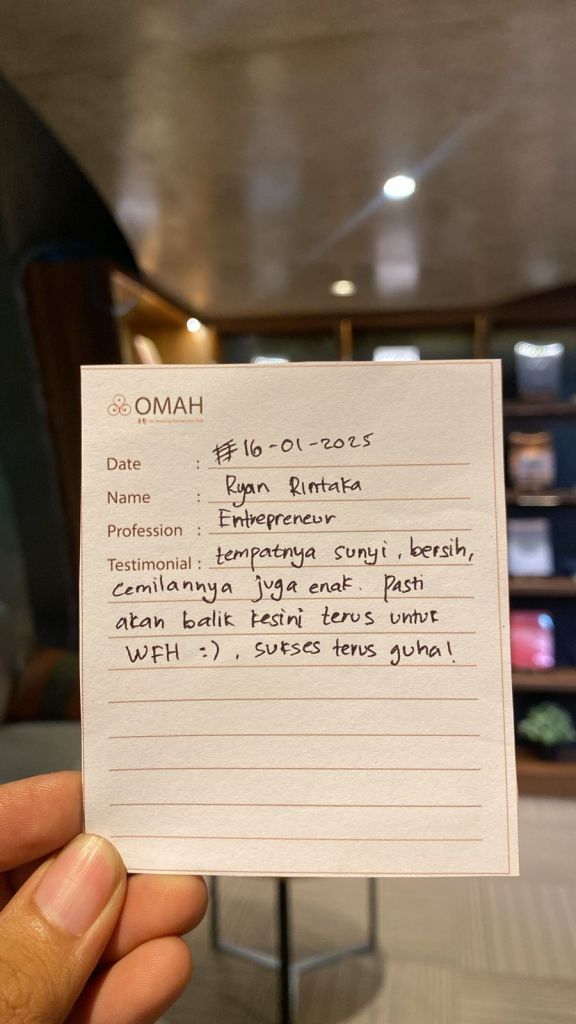 OMAH
Date : 16-01-2025
Name : Ryan Rintaka
Profession : Entrepreneur
Testimonial : tempatnya sunyi, bersih,
cemilannya juga enak. Pasti
akan balik kesini terus untuk
WFH :), sukses terus guha!